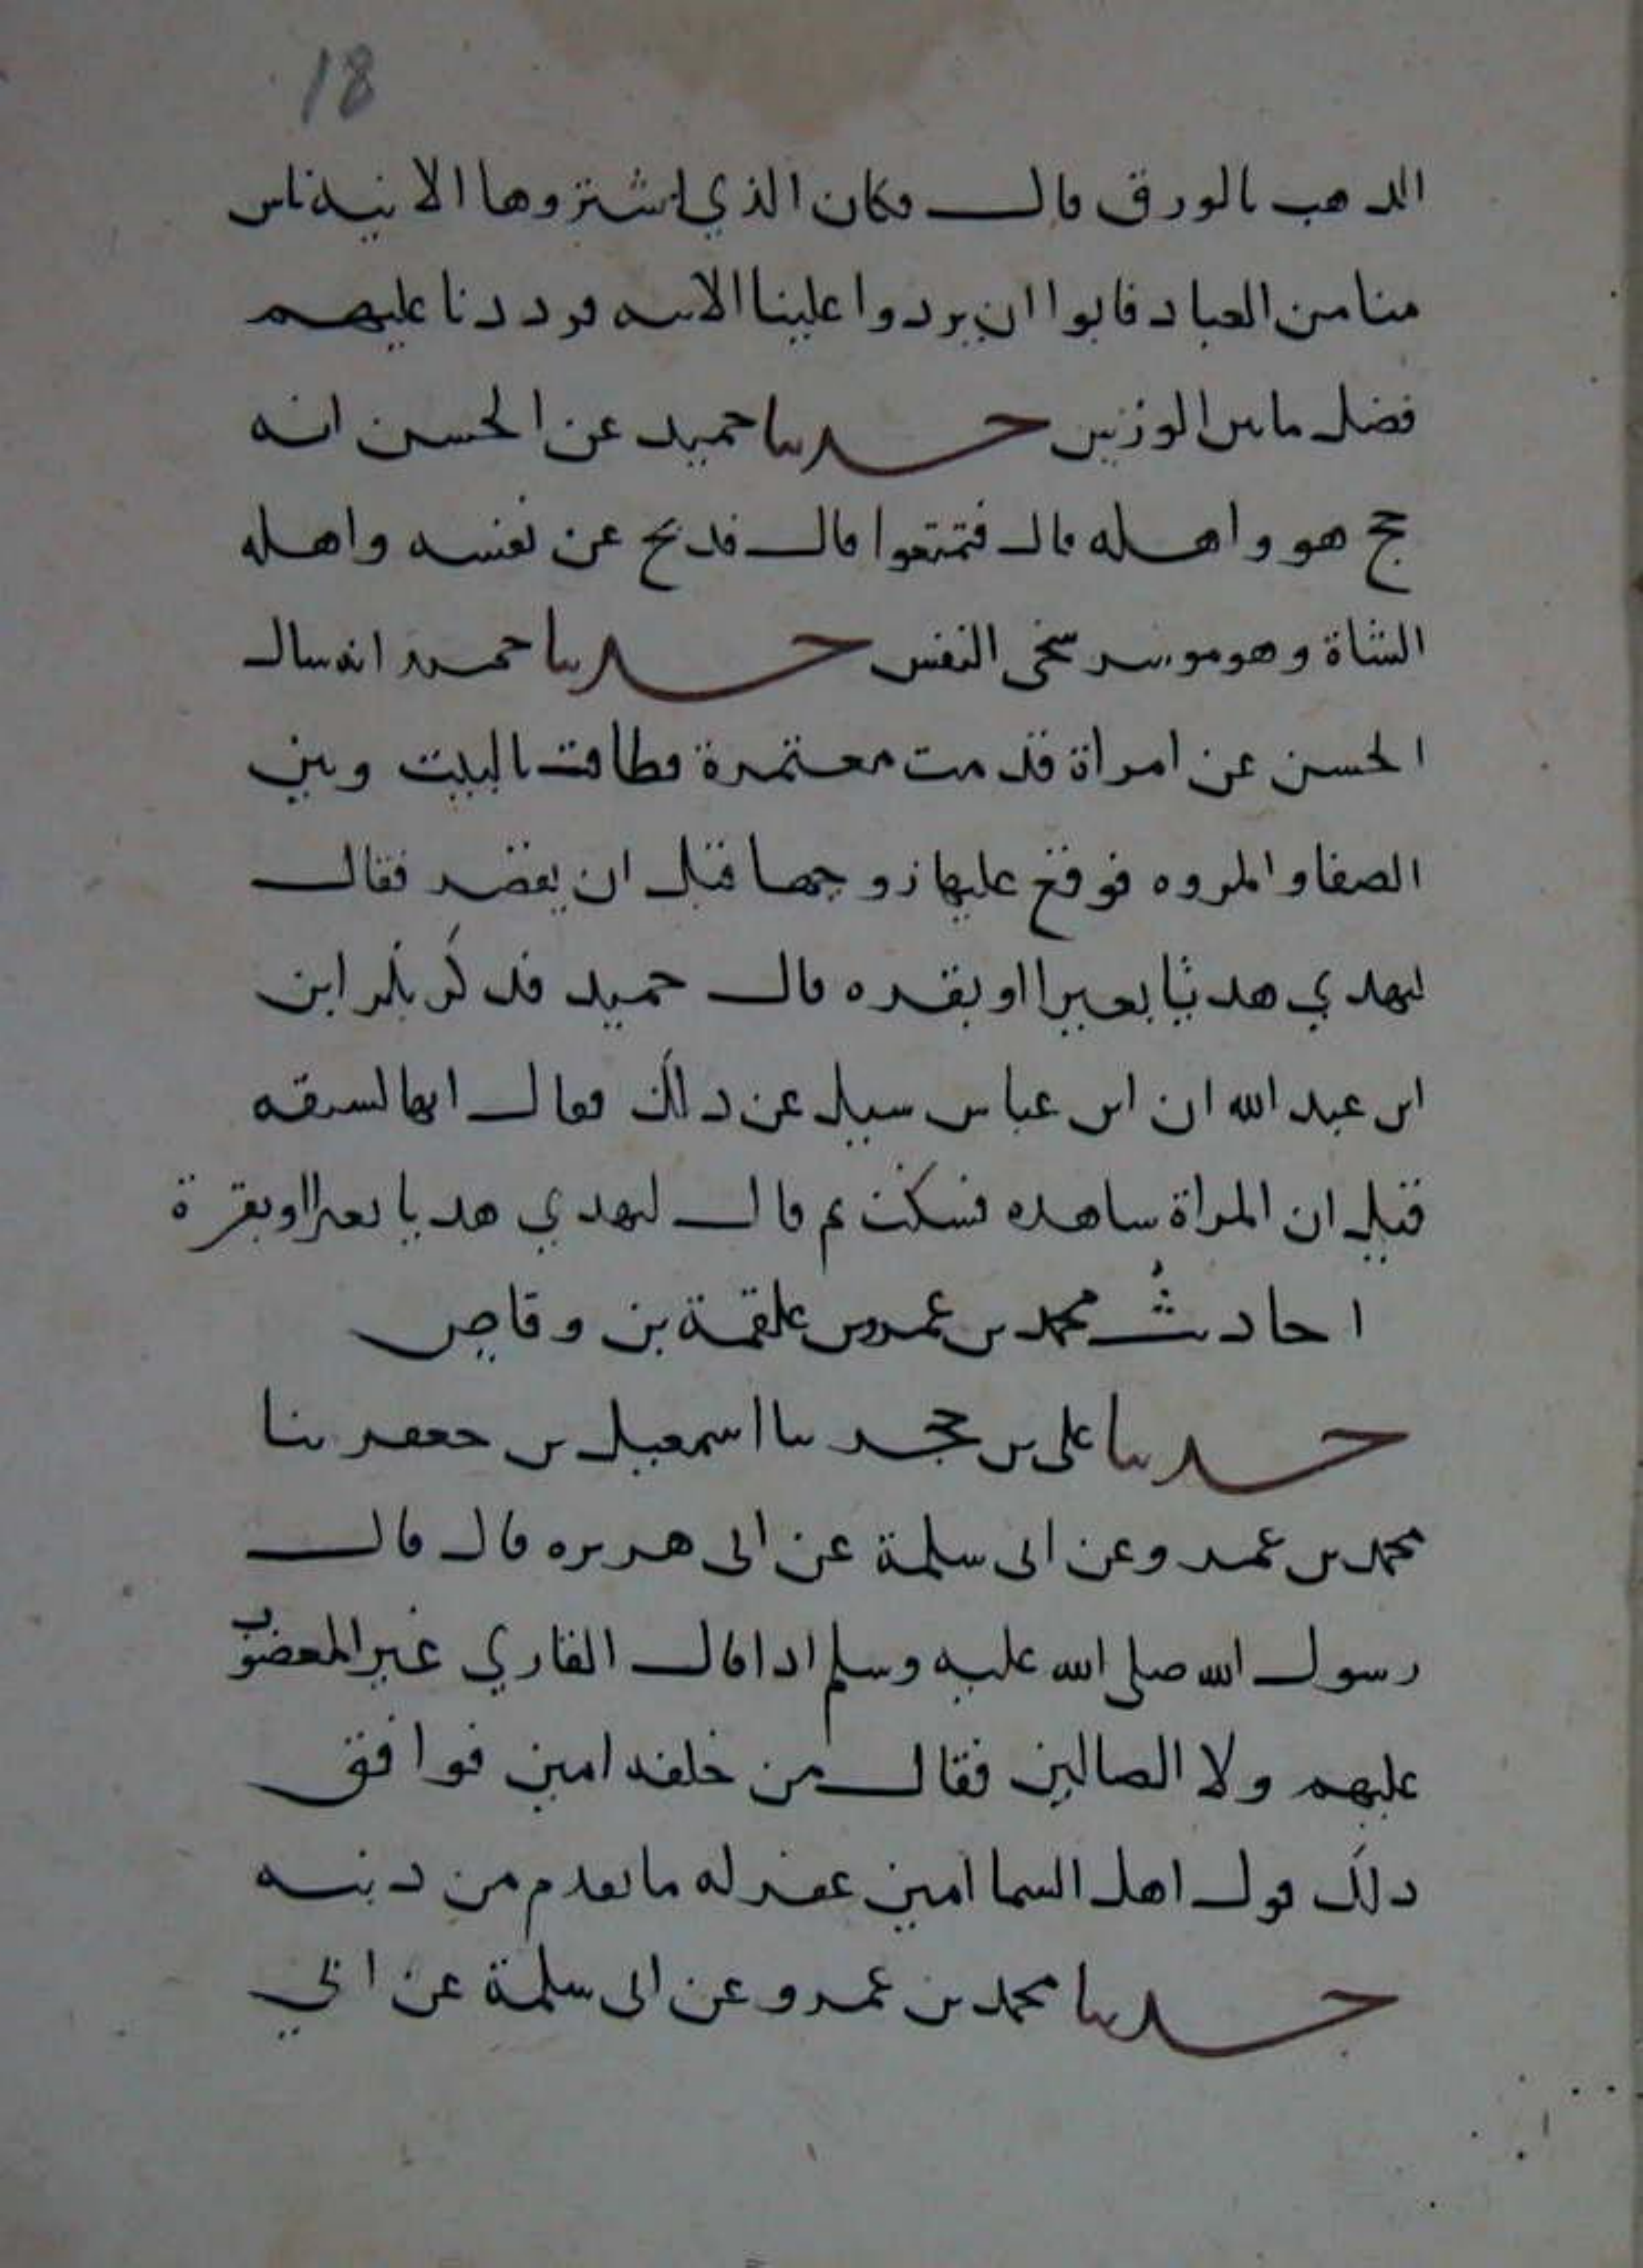 18
الذهب بالورق قال فكان الذي اشتروها الانية ناس
منا من العباد فابوا ان يردوا علينا الانيه فرددنا عليهم
فضل مابين الوزنين حدثنا حميد عن الحسن انه
حج هو واهله قال فتمتعوا قال فذبح عن نفسه واهله
الشاة وهو موسر سخى النفس حدثنا حميد انه سال
الحسن عن امراة قدمت معتمرة فطافت بالبيت وبين
الصفا والمروه فوقع عليها زوجها قبل ان يقصر فقال
لتهدي هديا بعيرا او بقره قال حميد فذكر بكر ابن
ابن عبد الله ان ابن عباس سيل عن ذلك فقال انها لشبقه
قيل ان المراة شاهده فسكت ثم قال لتهدي هديا بعيرا او بقرة
احاديث محمد بن عمرو بن علقمة بن وقاص
حدثنا على بن حجر ثنا اسمعيل بن جعفر ثنا
محمد بن عمرو عن ابى سلمة عن ابى هريره قال قال
رسول الله صلى الله عليه وسلم اذا قال القاري غير المغضوب
عليهم ولا الضالين فقال من خلفه امين فوافق
ذلك قول اهل السما امين غفر له ما تقدم من ذنبه
حدثنا محمد بن عمرو عن ابى سلمة عن ابي